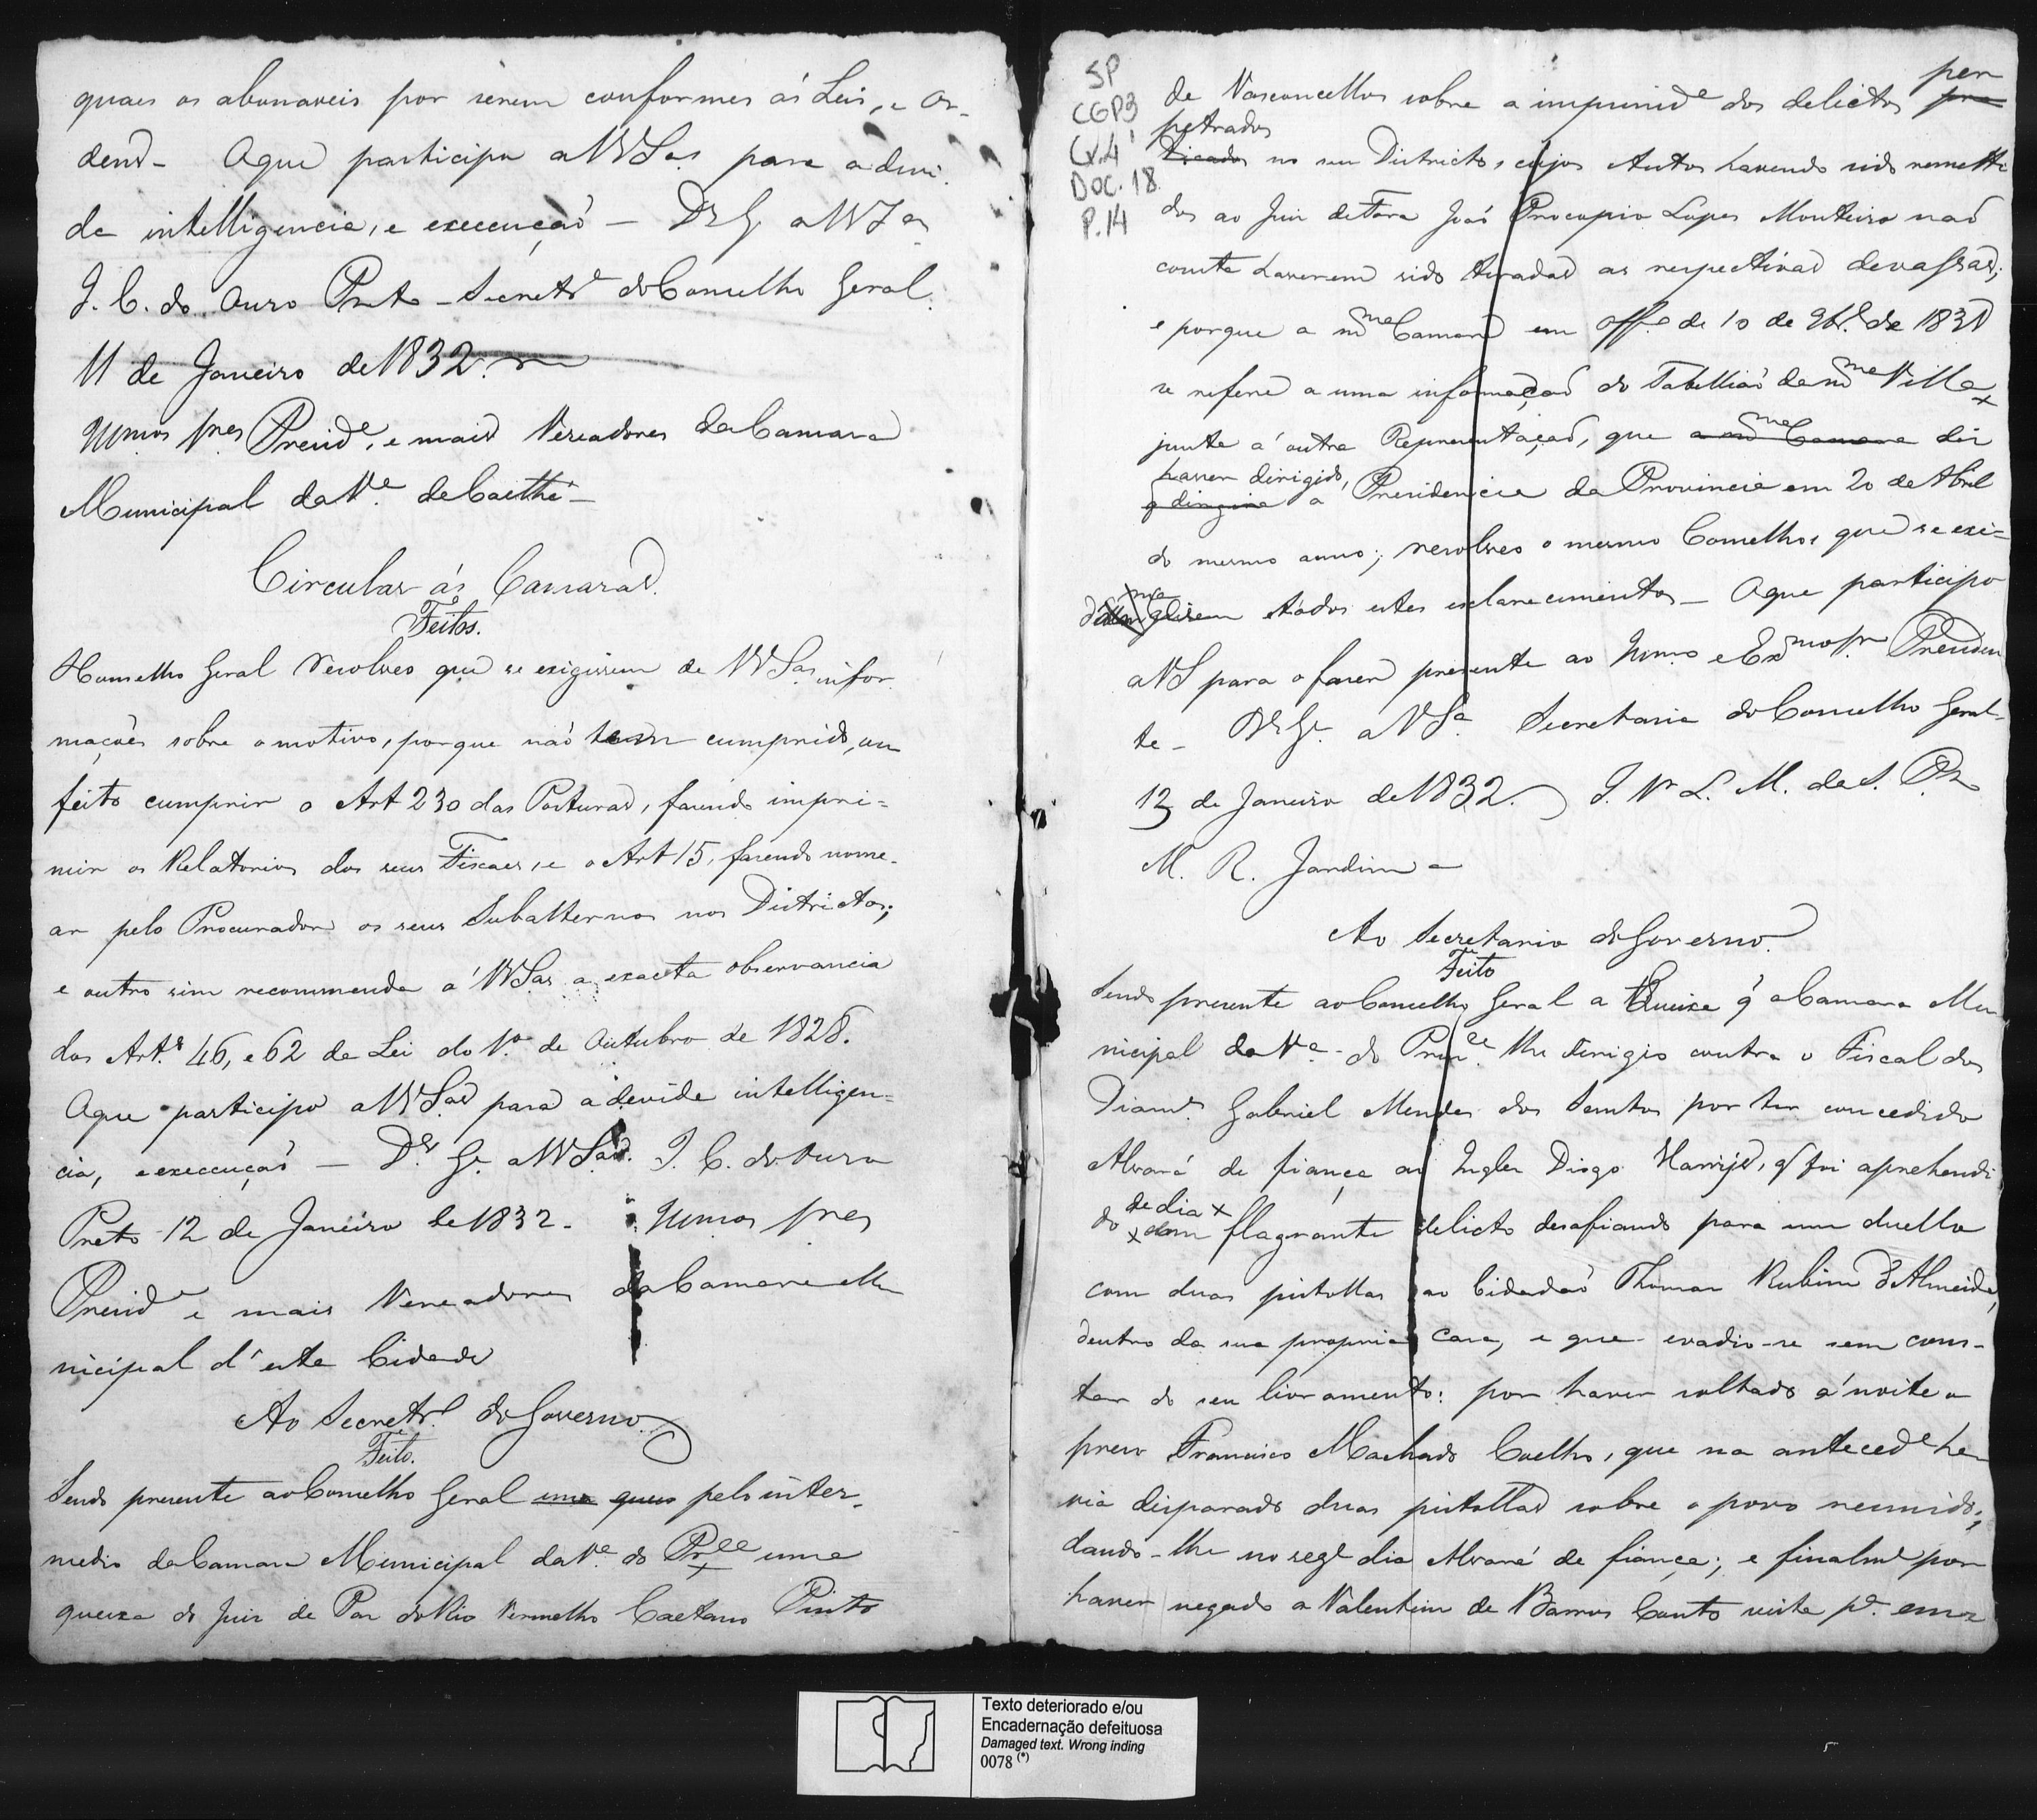 quaes os abonaveis por serem conformes ás Leis, e Or-
dens - Aque participo a VVSas para a devi-
da intelligencia, e execução - DsGe a VVSas
I. C. do Ouro Preto - Secretra do Conselho Geral
11 de Janeiro de 1832.
Illmos Snres Presidte, e mais Vereadores da Camara
Municipal da Va de Caethé -
Circular ás Camaras.
Feitos.
O Conselho Geral resolveo que se exigissem de VVSas infor-
mações sobre o motivo, porque não tem cumprido, ou
feito cumprir o Art 230 das Posturas, fazendo impri-
mir os Relatorios dos seus Fiscaes, e o Art 15, fazendo nome-
ar pelo Procurador os seus Subalternos nos Districtos;
e outro sim recommenda á VVSas a exacta observancia
dos Arts 46, e 62 da Lei do 1o de Outubro de 1828.
Aque participo a VVSas para a devida intelligen-
cia, e execcução - Ds Ge a VVSas. I. C. do Ouro
Preto 12 de Janeiro de 1832 - Illmos Snres
Preside e mais Vereadores da Camara Mu
nicipal d'esta Cidade
Ao Secretro do Governo
Feito.
Sendo presente ao Conselho Geral uma queix pelo inter-
medio da Camara Municipal da Va do Prce uma
queixa do Juiz de Paz do Rio Vermelho Caetano Pinto
SP
CGP3
Cx.4
DOC. 18
P.14
de Vasconcellos sobre a impunide dos delictos pra per
ticados petrados no seu Districto, cujos Autos havendo sido remetti
dos ao Juiz de Fora João Procopio Lopes Monteiro não
consta haverem sido tiradas as respectivas devassas;
e porque a mma Camara em Offo de 10 de 9bro de 1831
se refere a uma informação do Tabellião da mma Villa
junta á outra Representação, que a mma Camara diz
q dirigira haver dirigido, á Presidencia da Provincia em 20 de Abril
do mesmo anno; resolveo o mesmo Conselho, que se exi-
gissem todos estes esclarecimentos - Aque participo
a VS para o fazer presente ao Illmo e Exmo Snr Presiden
te - Ds Ge a VSa Secretaria do Conselho Geral
13 de Janeiro de 1832. I. Vr L. M. da S. Pto
M. R. Jardim -
Ao Secretario do Governo.
Feito
Sendo presente ao Conselho Geral a Queixa q a Camara Mu
nicipal da Va do Prince lhe dirigio contra o Fiscal dos
Diamtes Gabriel Mendes dos Santos por ter concedido
Alvará de fiança ao Inglez Diogo, q foi aprehendi
do de dia em flagrante delicto desafiando para um duello
com duas pistollas ao Cidadão Thomaz Rubim d'Almeida,
dentro da sua propria casa, e que evadio-se sem cons-
tar do seu livramento: por haver soltado á noite o
prezo Francisco Machado Coelho, que na antecede ha
via disparado duas pistollas sobre o povo reunido;
dando-lhe no sege dia Alvará de fiança; e finalme por
haver negado a Valentim de Barros Couto vista pa
Texto deteriorado e/ou
Encadernação defeituosa
Damaged text. Wrong inding
0078 (*)